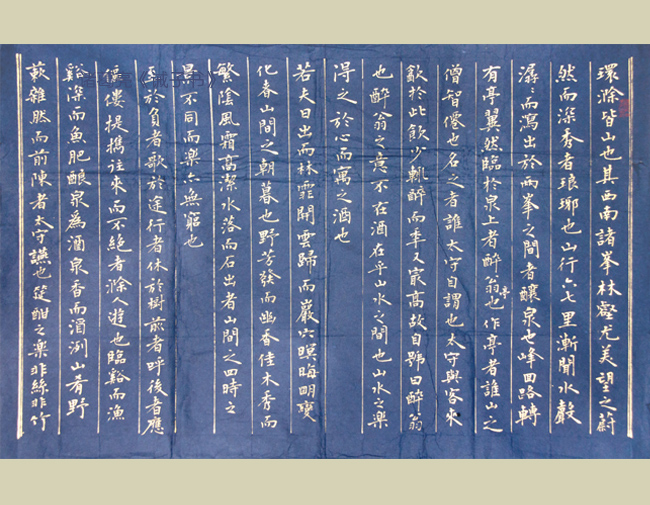 環滁皆山也其西南諸峯林壑尤美望之蔚
然而深秀者琅琊也山行六七里漸聞水聲
潺〻而瀉出於兩峯之間者釀泉也峰回路轉
有亭翼然臨於泉上者醉翁亭也作亭者誰山之
僧智僊也名之者誰太守自謂也太守與客來
飲於此飲少輒醉而年又最高故自號曰醉翁
也醉翁之意不在酒在乎山水之間也山水之樂
得之於心而寓之酒也
若夫日出而林霏開雲歸而巖穴暝晦明變
化者山間之朝暮也野芳發而幽香佳木秀而
繁陰風霜高潔水落而石出者山間之四時之
景不同而樂亦無窮也
至於負者歌於途行者休於樹前者呼後者應
傴僂提攜往來而不絕者滁人遊也臨谿而漁
谿深而魚肥釀泉為酒泉香而酒洌山肴野
蔌雜然而前陳者太守讌也宴酣之樂非絲非竹
《诫子书》